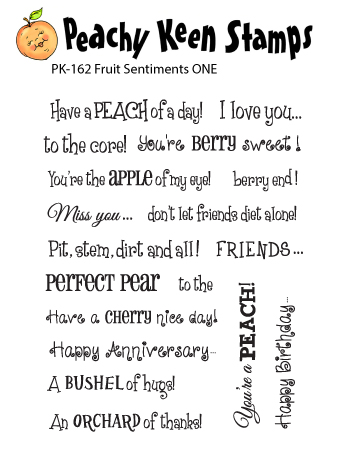 Peachy Keen Stamps
PK-162 Fruit Sentiments ONE
Have a PEACH of a day! I love you...
to the core! You're BERRY sweet!
You're the APPLE of my eye! berry end!
Miss you... don't let friends diet alone!
Pit, stem, dirt and all! FRIENDS...
PERFECT PEAR to the
Have a CHERRY nice day!
Happy Anniversary...
A BUSHEL of hugs!
An ORCHARD of thanks!
You're a PEACH!
Happy Birthday...